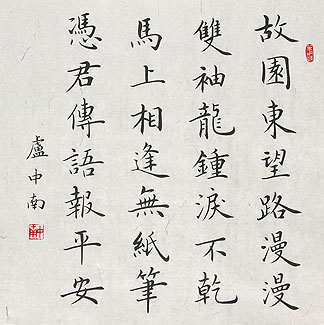 故園東望路漫漫
雙袖龍鍾淚不乾
馬上相逢無紙筆
憑君傳語報平安
盧中南